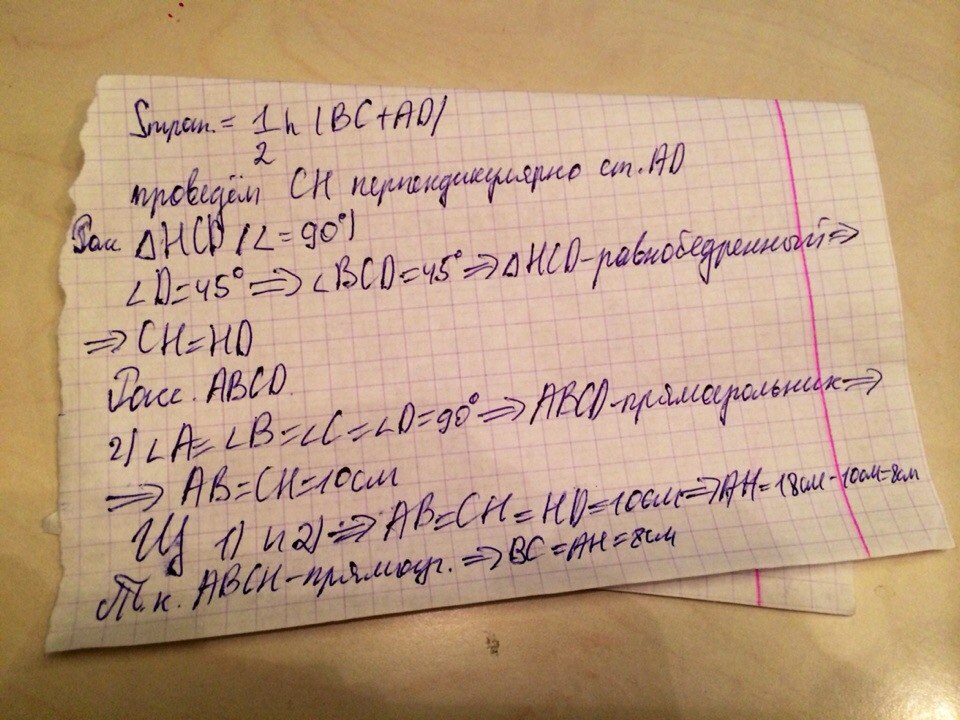 Sтрап. = 1/2 h (BC+AD)
проведём CH перпендикулярно ст. AD
Расс ΔHCD (∠ = 90°)
∠D=45° ⇒ ∠BCD=45° ⇒ ΔHCD-равнобедренный ⇒
⇒ CH=HD
Расс. ABCD
2) ∠A=∠B=∠C=∠D=90° ⇒ ABCD-прямоугольник ⇒
⇒ AB=CH=10см
Из 1) и 2) ⇒ AB=CH=HD=10см ⇒ AH=18см-10см=8см
Т.к. ABCH-прямоуг. ⇒ BC=AH=8см